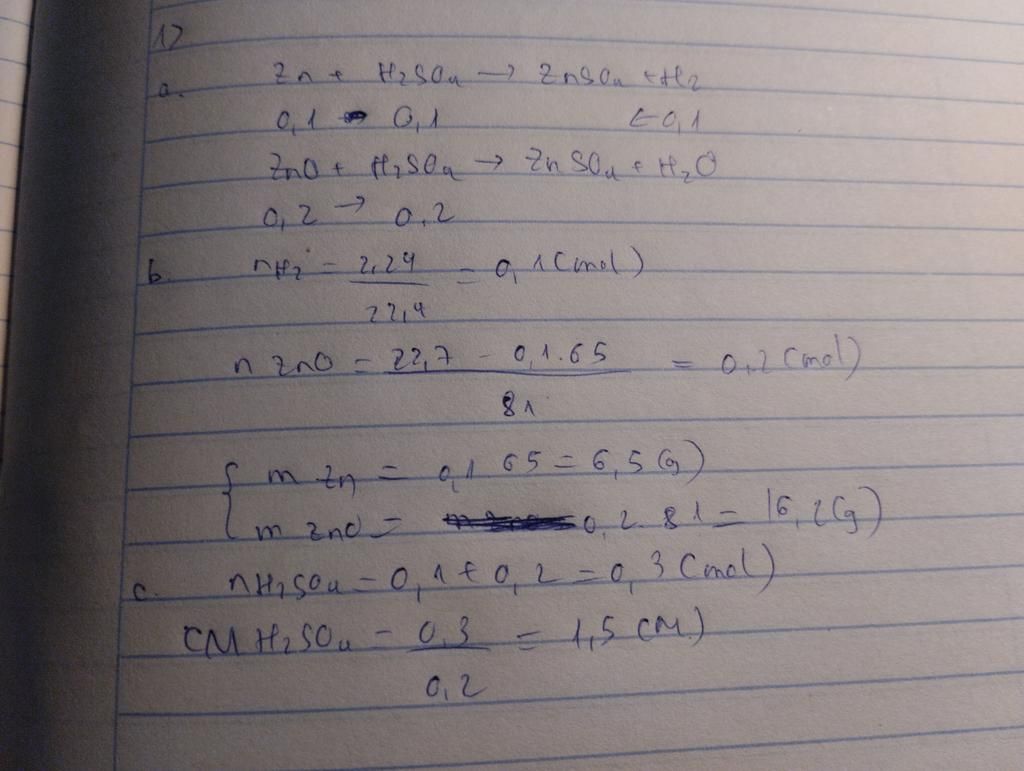 1)
a. Zn + H2SO4 → ZnSO4 + H2
0,1 → 0,1 ← 0,1
ZnO + H2SO4 → ZnSO4 + H2O
0,2 → 0,2
b. nH2 = 2,24 = 0,1 (mol)
22,4
n ZnO = 22,7 - 0,1.65 = 0,2 (mol)
81
{ m Zn = 0,1 65 = 6,5 (g)
m ZnO = 0,2.81 = 16,2 (g)
c. nH2SO4 = 0,1 + 0,2 = 0,3 (mol)
CM H2SO4 = 0,3 = 1,5 (M)
0,2